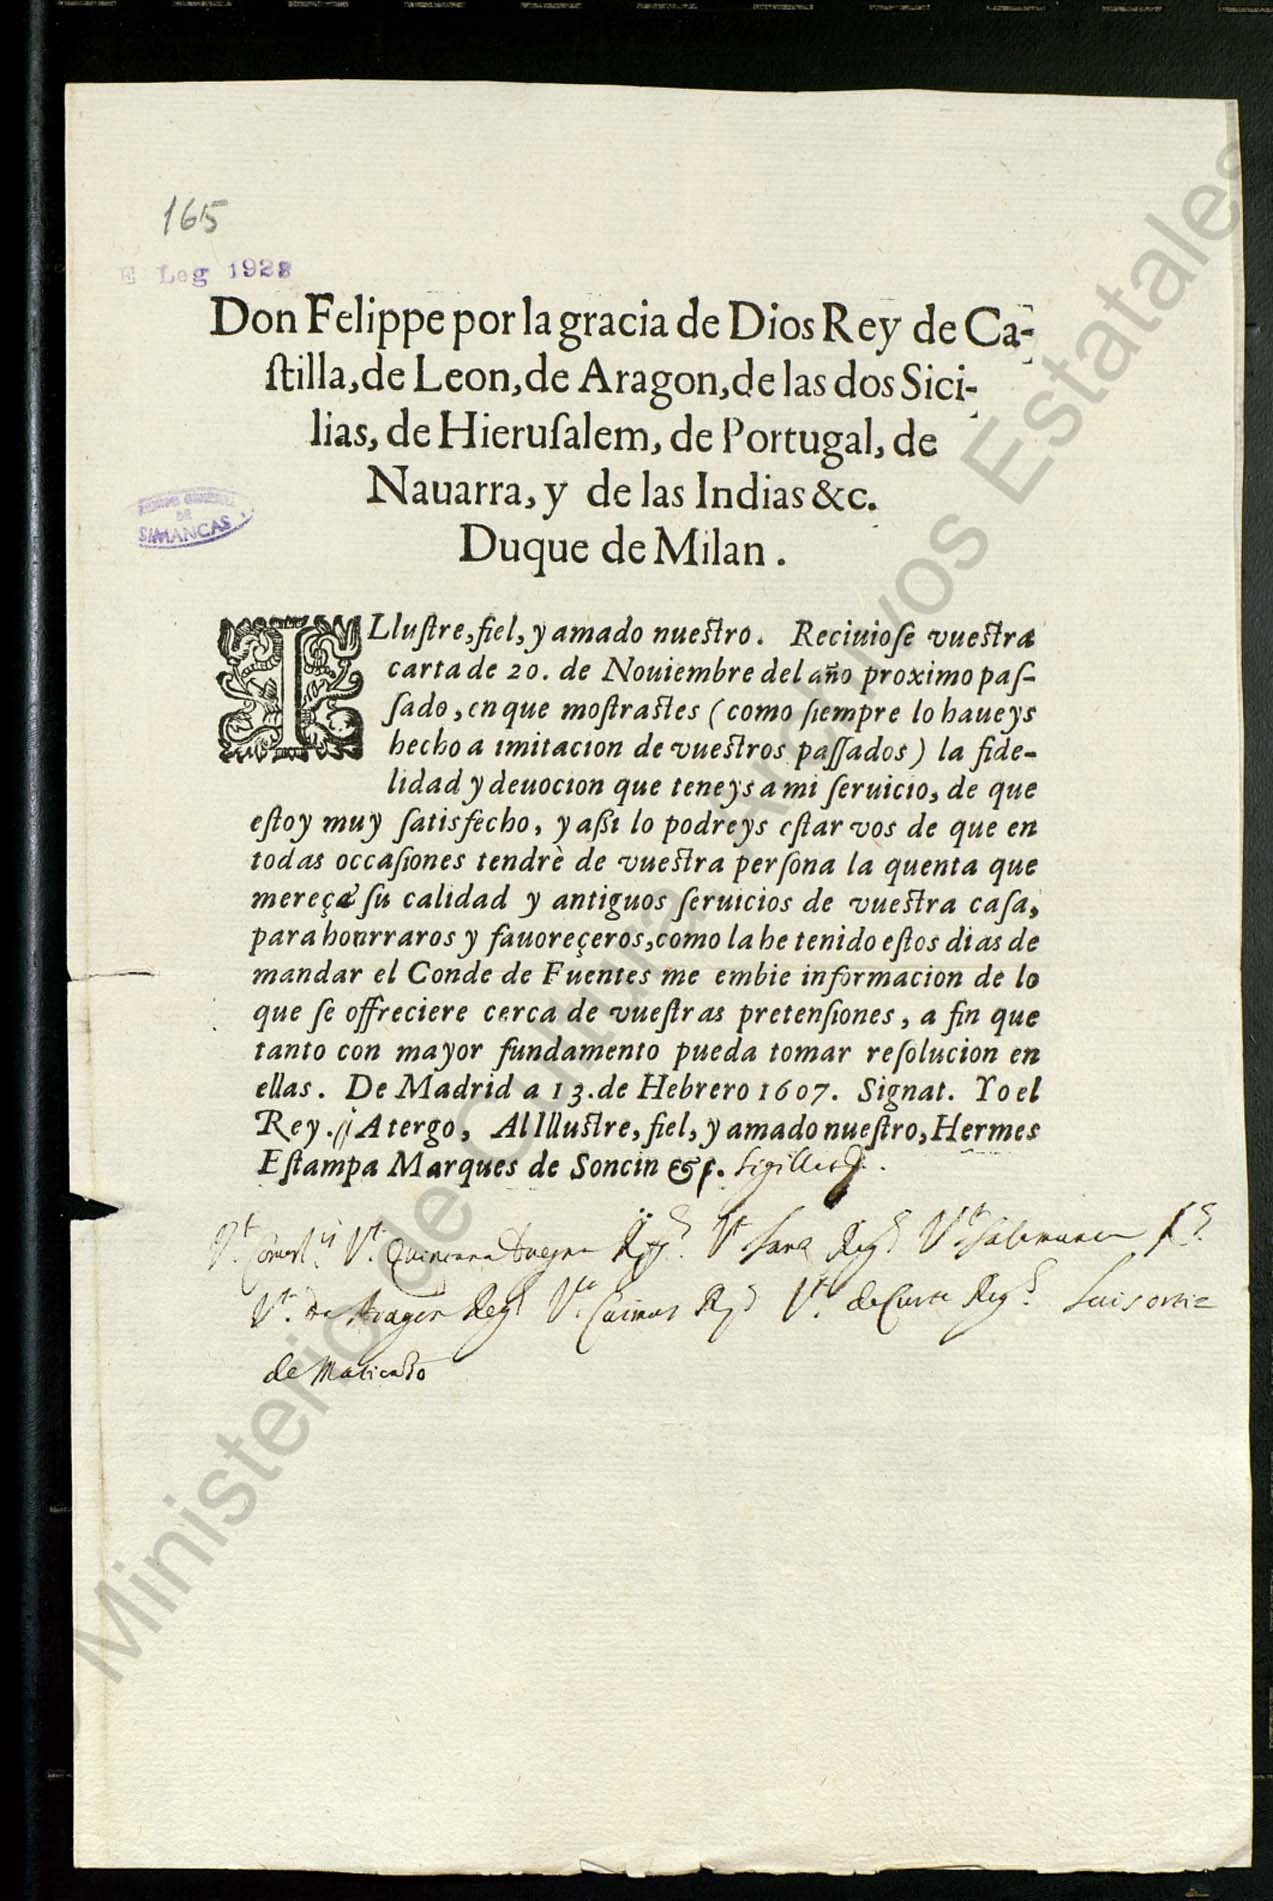 165
E Leg 1928
Don Felippe por la gracia de Dios Rey de Ca-
ſtilla, de Leon, de Aragon, de las dos Sici-
lias, de Hieruſalem, de Portugal, de
Nauarra, y de las Indias &c.
Duque de Milan.
ARCHIVO GENERAL
DE
SIMANCAS
ILluſtre, fiel, y amado nueſtro. Reciuioſe vueſtra
carta de 20. de Nouiembre del año proximo paſ-
ſado, en que moſtraſtes (como ſiempre lo haueys
hecho a imitacion de vueſtros paſſados) la fide-
lidad y deuocion que teneys a mi ſeruicio, de que
eſtoy muy ſatisfecho, y aßi lo podreys eſtar vos de que en
todas occaſiones tendrè de vueſtra perſona la quenta que
mereçe ſu calidad y antiguos ſeruicios de vueſtra caſa,
para honrraros y fauoreçeros, como la he tenido eſtos dias de
mandar el Conde de Fuentes me embie informacion de lo
que ſe offreciere cerca de vueſtras pretenſiones, a fin que
tanto con mayor fundamento pueda tomar reſolucion en
ellas. De Madrid a 13. de Hebrero 1607. Signat. Yo el
Rey. // A tergo, Al Illuſtre, fiel, y amado nueſtro, Hermes
Eſtampa Marques de Soncin &c.
Vt. Vt. Quintana Duegna Reg. Vt. Reg. Vt. Salamanca
Vt. De Aragon Reg. Vt. Caimus Reg. Vt. de Curte Reg. Luis ortiz
de Matienço
Ministerio de Cultura. Archivos Estatales